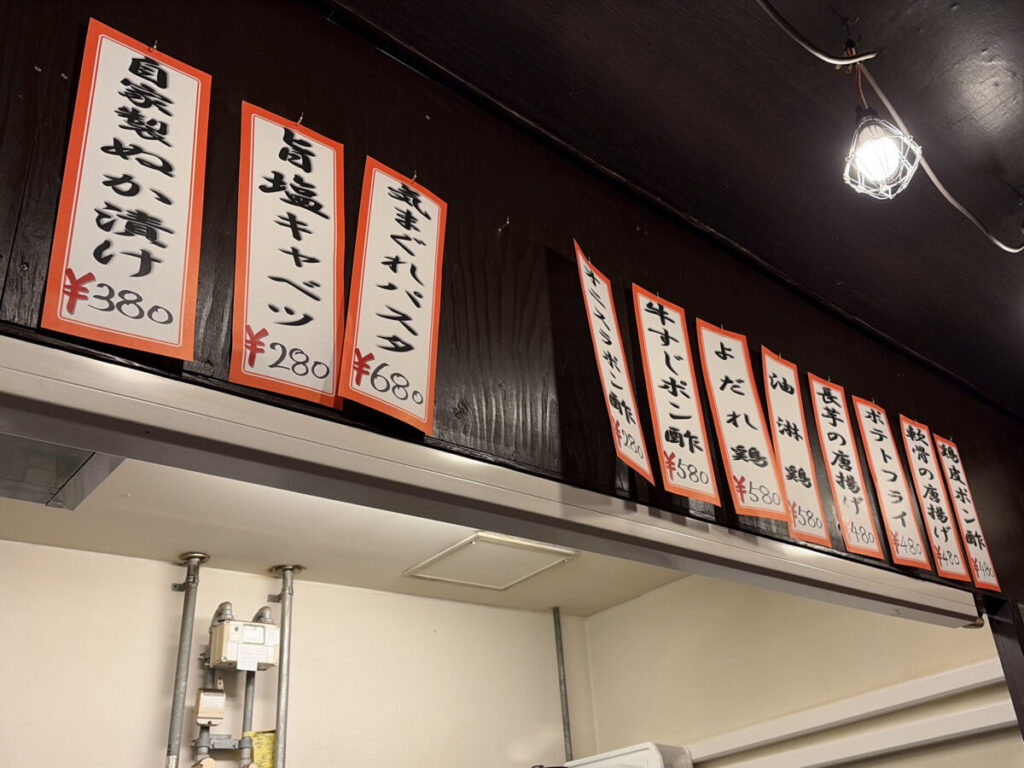 自家製ぬか漬け
¥380
旨塩キャベツ
¥280
気まぐれパスタ
¥680
オニスラポン酢
¥280
牛すじポン酢
¥580
よだれ鶏
¥580
油淋鶏
¥580
長芋の唐揚げ
¥480
ポテトフライ
¥480
軟骨の唐揚げ
¥480
鶏皮ポン酢
¥480